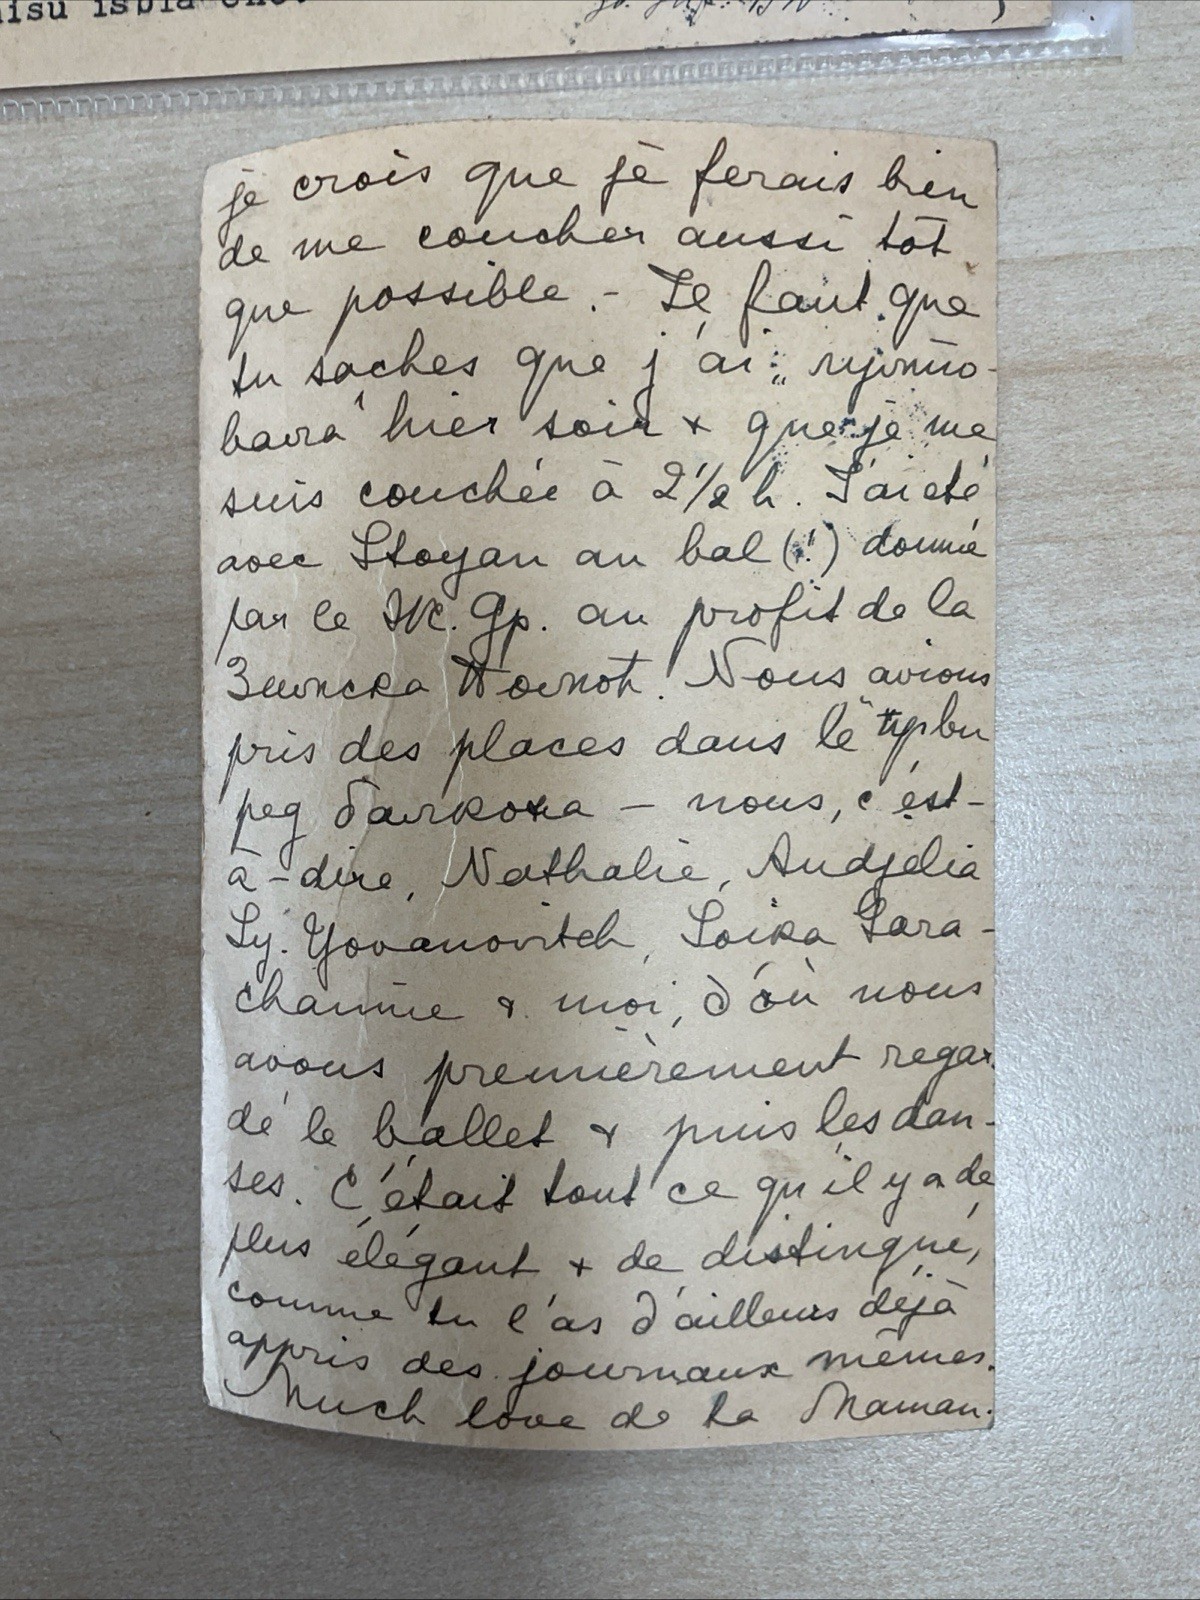 isu isbla
je crois que je ferais bien
de me coucher aussi tôt
que possible. - Il faut que
tu saches que j'ai „лумпо-
вала" hier soir & que je me
suis couchée à 2 1/2 h. J'ai été
avec Stoyan au bal (!) donné
par le Ж. Др. au profit de la
Зимска Помоћ. Nous avions
pris des places dans le "први
ред балкона — nous, c'est-
à-dire, Nathalie, Andjelia
Lj. Yovanovitch, Soika Gara-
chanine & moi, d'où nous
avons premièrement regar-
dé le ballet & puis les dan-
ses. C'était tout ce qu'il y a de
plus élégant & de distingué,
comme tu l'as d'ailleurs déjà
appris des journaux mêmes.
Much love de ta Maman.